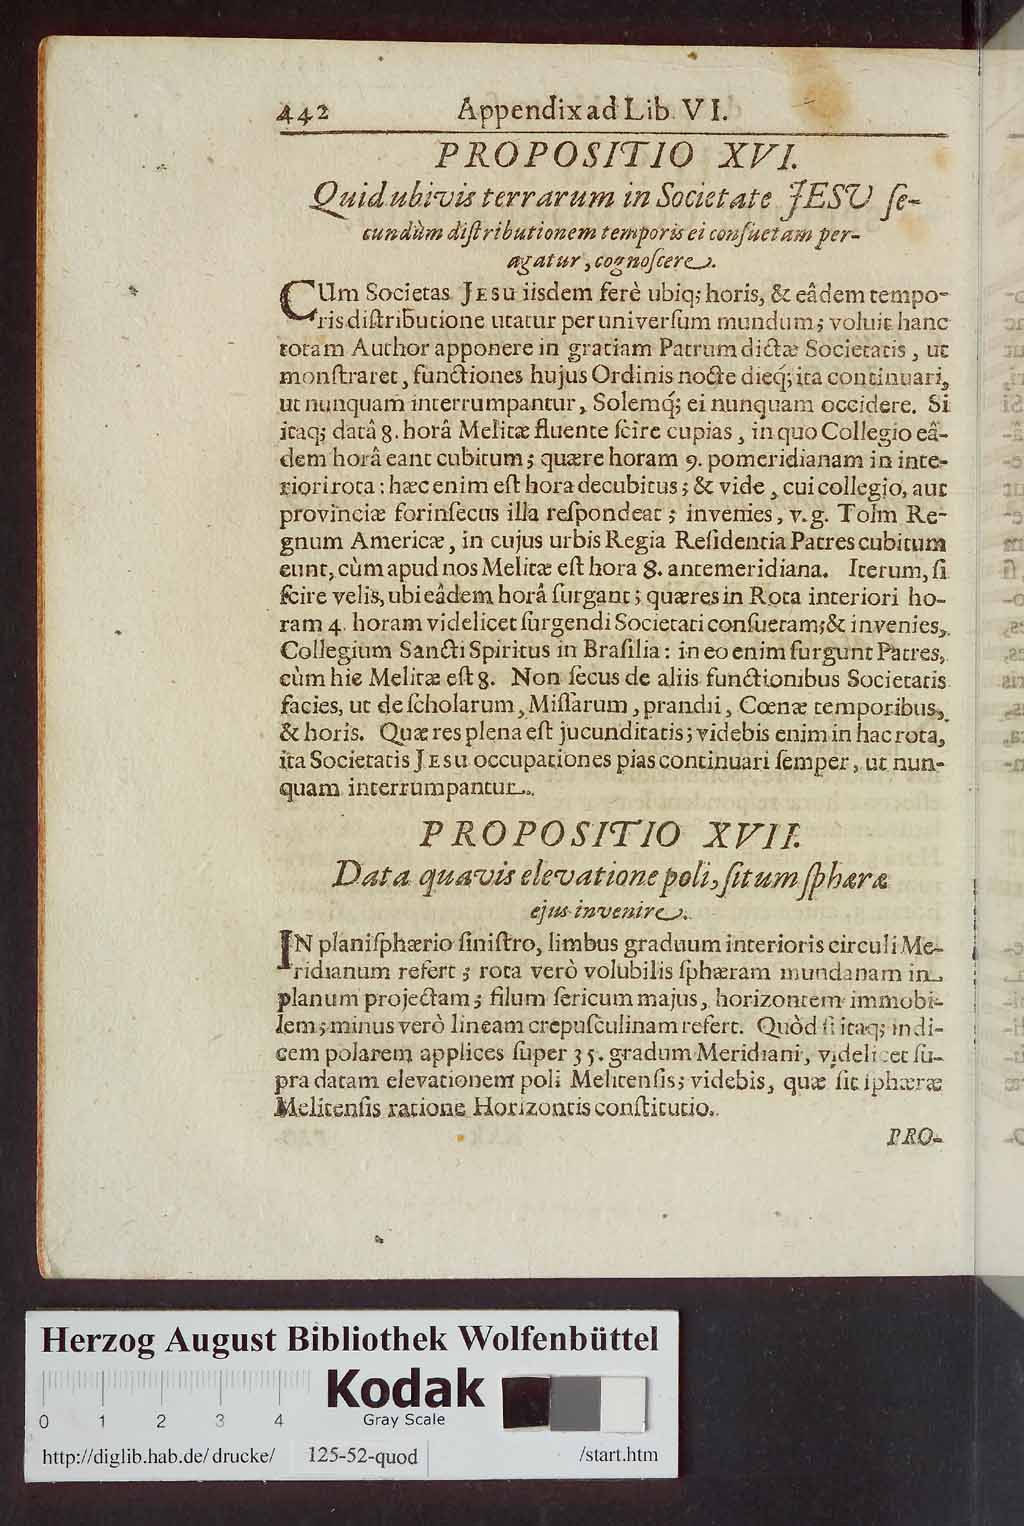 442 Appendix ad Lib. VI.
PROPOSITIO XVI.
Quid ubivis terrarum in Societate JESU ſe-
cundùm diſtributionem temporis ei conſuetam per-
agatur, cognoſcere.
CUm Societas JESU iisdem ferè ubiq; horis, & eâdem tempo-
ris diſtributione utatur per univerſum mundum; voluit hanc
totam Author apponere in gratiam Patrum dictæ Societatis, ut
monſtraret, functiones hujus Ordinis nocte dieq́; ita continuari,
ut nunquam interrumpantur, Solemq́; ei nunquam occidere. Si
itaq; datâ 8. horâ Melitæ fluente ſcire cupias, in quo Collegio eâ-
dem horâ eant cubitum; quære horam 9. pomeridianam in inte-
riori rota: hæc enim eſt hora decubitus; & vide, cui collegio, aut
provinciæ forinſecus illa reſpondeat; invenies, v.g. Tolm Re-
gnum Americæ, in cujus urbis Regia Reſidentia Patres cubitum
eunt, cùm apud nos Melitæ eſt hora 8. antemeridiana. Iterum, ſi
ſcire velis, ubi eâdem horâ ſurgant; quæres in Rota interiori ho-
ram 4. horam videlicet ſurgendi Societati conſuetam; & invenies,
Collegium Sancti Spiritus in Braſilia: in eo enim ſurgunt Patres,
cùm hic Melitæ eſt 8. Non ſecus de aliis functionibus Societatis
facies, ut de ſcholarum, Miſſarum, prandii, Cœnæ temporibus,
& horis. Quæ res plena eſt jucunditatis; videbis enim in hac rota,
ita Societatis JESU occupationes pias continuari ſemper, ut nun-
quam interrumpantur.
PROPOSITIO XVII.
Data quavis elevatione poli, ſitum ſphæræ
ejus invenire.
IN planiſphærio ſiniſtro, limbus graduum interioris circuli Me-
ridianum refert; rota verò volubilis ſphæram mundanam in
planum projectam; filum ſericum majus, horizontem immobi-
lem; minus verò lineam crepuſculinam refert. Quòd ſi itaq; indi-
cem polarem applices ſuper 35. gradum Meridiani, videlicet ſu-
pra datam elevationem poli Melitenſis; videbis, quæ ſit ſphæræ
Melitenſis ratione Horizontis conſtitutio.
PRO-
Herzog August Bibliothek Wolfenbüttel
Kodak
Gray Scale
0 1 2 3 4
http://diglib.hab.de/drucke/ 125-52-quod /start.htm